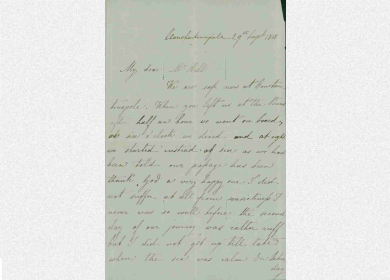 Constantinople 29th Sept.
My dear Mr Hill
We are safe now at Constan
tinople. When you left us at the
after half an hour we went on board,
at six o'clock we dined and at eight
we started instead of six as we had
been told our passage has been
thank God a very happy one. I did
not suffer at all from seasickness I
never was so well before the second
day of our journey was rather ruff
but I did not get up till late
when the sea was calm
day